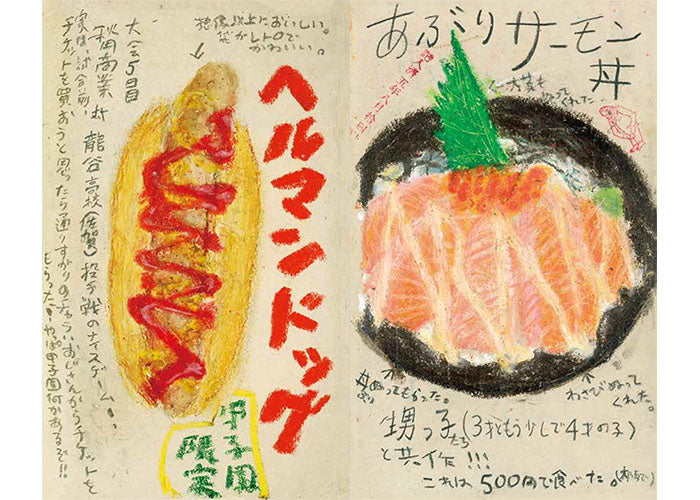 大会5日目
秋田商業対龍谷高校(佐賀)投手戦のナイスゲーム!
実は、試合前、
チケットを買おうと思ったら通りすがりのちゅういおじさんからチケットを
もらった! やっぱ甲子園何かあるぞ!!
想像以上においしい。
袋がレトロで
かわいい。
ヘルマンドッグ
甲子園
限定
あぶりサーモン
丼
大葉も
ぬってくれた。
丼ぬってもらった。
わさびぬって
くれた。
甥っ子たち(3才ともう少しで4才の子)
と共作!!!
これは、500円で食べた。